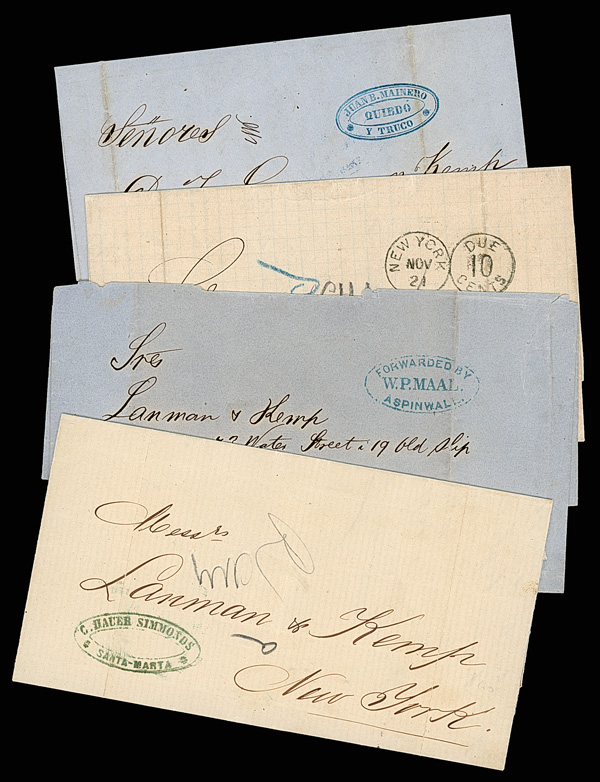 JUAN B. MAINERO
QUIBDO
Y TRUCO
Señores
Kemp
NEW YORK
NOV
21
DUE
10
CENTS
FORWARDED BY
W. P. MAAL.
ASPINWALL
Sres
Lanman & Kemp
Water Street & 19 Old Slip
Messrs
Lanman & Kemp
New York.
C. HAUER SIMMONDS
SANTA-MARTA